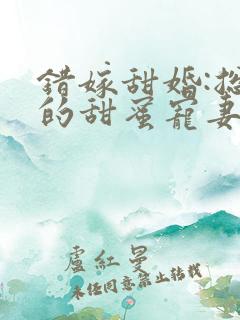 錯嫁甜婚:總
的甜蜜寵妻
盧紅曼
未任同意禁止轉載